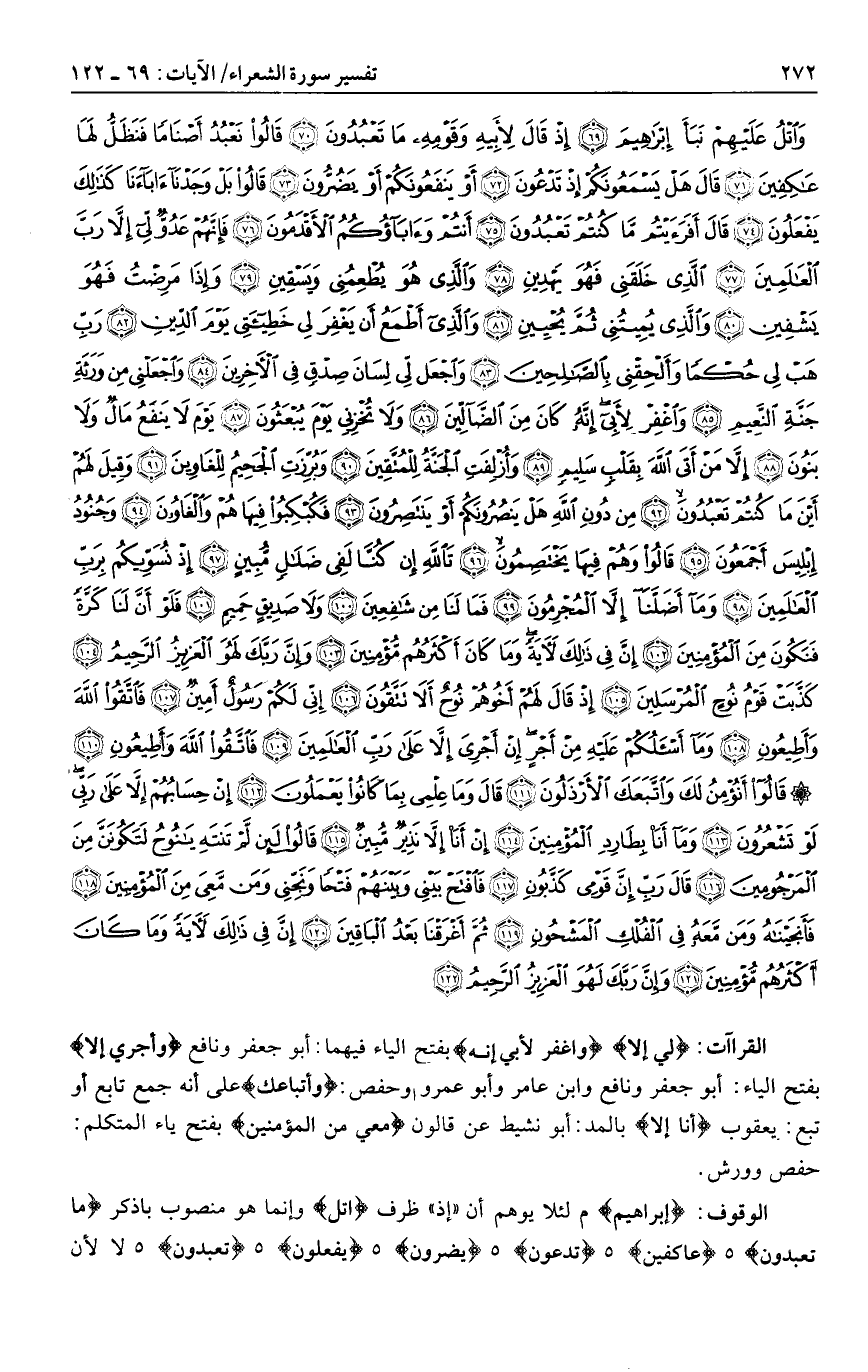 ٢٧٢ تفسير سورة الشعراء/ الآيات: ٦٩ ـ ١٢٢
وَٱتْلُ عَلَيْهِمْ نَبَأَ إِبْرَٰهِيمَ ﴿٦٩﴾ إِذْ قَالَ لِأَبِيهِ وَقَوْمِهِۦ مَا تَعْبُدُونَ ﴿٧٠﴾ قَالُوا۟ نَعْبُدُ أَصْنَامًا فَنَظَلُّ لَهَا
عَٰكِفِينَ ﴿٧١﴾ قَالَ هَلْ يَسْمَعُونَكُمْ إِذْ تَدْعُونَ ﴿٧٢﴾ أَوْ يَنفَعُونَكُمْ أَوْ يَضُرُّونَ ﴿٧٣﴾ قَالُوا۟ بَلْ وَجَدْنَآ ءَابَآءَنَا كَذَٰلِكَ
يَفْعَلُونَ ﴿٧٤﴾ قَالَ أَفَرَءَيْتُم مَّا كُنتُمْ تَعْبُدُونَ ﴿٧٥﴾ أَنتُمْ وَءَابَآؤُكُمُ ٱلْأَقْدَمُونَ ﴿٧٦﴾ فَإِنَّهُمْ عَدُوٌّ لِّىٓ إِلَّا رَبَّ
ٱلْعَٰلَمِينَ ﴿٧٧﴾ ٱلَّذِى خَلَقَنِى فَهُوَ يَهْدِينِ ﴿٧٨﴾ وَٱلَّذِى هُوَ يُطْعِمُنِى وَيَسْقِينِ ﴿٧٩﴾ وَإِذَا مَرِضْتُ فَهُوَ
يَشْفِينِ ﴿٨٠﴾ وَٱلَّذِى يُمِيتُنِى ثُمَّ يُحْيِينِ ﴿٨١﴾ وَٱلَّذِىٓ أَطْمَعُ أَن يَغْفِرَ لِى خَطِيٓـَٔتِى يَوْمَ ٱلدِّينِ ﴿٨٢﴾ رَبِّ
هَبْ لِى حُكْمًا وَأَلْحِقْنِى بِٱلصَّٰلِحِينَ ﴿٨٣﴾ وَٱجْعَل لِّى لِسَانَ صِدْقٍ فِى ٱلْءَاخِرِينَ ﴿٨٤﴾ وَٱجْعَلْنِى مِن وَرَثَةِ
جَنَّةِ ٱلنَّعِيمِ ﴿٨٥﴾ وَٱغْفِرْ لِأَبِىٓ إِنَّهُۥ كَانَ مِنَ ٱلضَّآلِّينَ ﴿٨٦﴾ وَلَا تُخْزِنِى يَوْمَ يُبْعَثُونَ ﴿٨٧﴾ يَوْمَ لَا يَنفَعُ مَالٌ وَلَا
بَنُونَ ﴿٨٨﴾ إِلَّا مَنْ أَتَى ٱللَّهَ بِقَلْبٍ سَلِيمٍ ﴿٨٩﴾ وَأُزْلِفَتِ ٱلْجَنَّةُ لِلْمُتَّقِينَ ﴿٩٠﴾ وَبُرِّزَتِ ٱلْجَحِيمُ لِلْغَاوِينَ ﴿٩١﴾ وَقِيلَ لَهُمْ
أَيْنَ مَا كُنتُمْ تَعْبُدُونَ ﴿٩٢﴾ مِن دُونِ ٱللَّهِ هَلْ يَنصُرُونَكُمْ أَوْ يَنتَصِرُونَ ﴿٩٣﴾ فَكُبْكِبُوا۟ فِيهَا هُمْ وَٱلْغَاوُۥنَ ﴿٩٤﴾ وَجُنُودُ
إِبْلِيسَ أَجْمَعُونَ ﴿٩٥﴾ قَالُوا۟ وَهُمْ فِيهَا يَخْتَصِمُونَ ﴿٩٦﴾ تَٱللَّهِ إِن كُنَّا لَفِى ضَلَٰلٍ مُّبِينٍ ﴿٩٧﴾ إِذْ نُسَوِّيكُم بِرَبِّ
ٱلْعَٰلَمِينَ ﴿٩٨﴾ وَمَآ أَضَلَّنَآ إِلَّا ٱلْمُجْرِمُونَ ﴿٩٩﴾ فَمَا لَنَا مِن شَٰفِعِينَ ﴿١٠٠﴾ وَلَا صَدِيقٍ حَمِيمٍ ﴿١٠١﴾ فَلَوْ أَنَّ لَنَا كَرَّةً
فَنَكُونَ مِنَ ٱلْمُؤْمِنِينَ ﴿١٠٢﴾ إِنَّ فِى ذَٰلِكَ لَءَايَةً وَمَا كَانَ أَكْثَرُهُم مُّؤْمِنِينَ ﴿١٠٣﴾ وَإِنَّ رَبَّكَ لَهُوَ ٱلْعَزِيزُ ٱلرَّحِيمُ ﴿١٠٤﴾
كَذَّبَتْ قَوْمُ نُوحٍ ٱلْمُرْسَلِينَ ﴿١٠٥﴾ إِذْ قَالَ لَهُمْ أَخُوهُمْ نُوحٌ أَلَا تَتَّقُونَ ﴿١٠٦﴾ إِنِّى لَكُمْ رَسُولٌ أَمِينٌ ﴿١٠٧﴾ فَٱتَّقُوا۟ ٱللَّهَ
وَأَطِيعُونِ ﴿١٠٨﴾ وَمَآ أَسْـَٔلُكُمْ عَلَيْهِ مِنْ أَجْرٍ إِنْ أَجْرِىَ إِلَّا عَلَىٰ رَبِّ ٱلْعَٰلَمِينَ ﴿١٠٩﴾ فَٱتَّقُوا۟ ٱللَّهَ وَأَطِيعُونِ ﴿١١٠﴾
۞ قَالُوٓا۟ أَنُؤْمِنُ لَكَ وَٱتَّبَعَكَ ٱلْأَرْذَلُونَ ﴿١١١﴾ قَالَ وَمَا عِلْمِى بِمَا كَانُوا۟ يَعْمَلُونَ ﴿١١٢﴾ إِنْ حِسَابُهُمْ إِلَّا عَلَىٰ رَبِّى
لَوْ تَشْعُرُونَ ﴿١١٣﴾ وَمَآ أَنَا۠ بِطَارِدِ ٱلْمُؤْمِنِينَ ﴿١١٤﴾ إِنْ أَنَا۠ إِلَّا نَذِيرٌ مُّبِينٌ ﴿١١٥﴾ قَالُوا۟ لَئِن لَّمْ تَنتَهِ يَٰنُوحُ لَتَكُونَنَّ مِنَ
ٱلْمَرْجُومِينَ ﴿١١٦﴾ قَالَ رَبِّ إِنَّ قَوْمِى كَذَّبُونِ ﴿١١٧﴾ فَٱفْتَحْ بَيْنِى وَبَيْنَهُمْ فَتْحًا وَنَجِّنِى وَمَن مَّعِىَ مِنَ ٱلْمُؤْمِنِينَ ﴿١١٨﴾
فَأَنجَيْنَٰهُ وَمَن مَّعَهُۥ فِى ٱلْفُلْكِ ٱلْمَشْحُونِ ﴿١١٩﴾ ثُمَّ أَغْرَقْنَا بَعْدُ ٱلْبَاقِينَ ﴿١٢٠﴾ إِنَّ فِى ذَٰلِكَ لَءَايَةً وَمَا كَانَ
أَكْثَرُهُم مُّؤْمِنِينَ ﴿١٢١﴾ وَإِنَّ رَبَّكَ لَهُوَ ٱلْعَزِيزُ ٱلرَّحِيمُ ﴿١٢٢﴾
القراآت: ﴿لي إلا﴾ ﴿واغفر لأبي إنه﴾ بفتح الياء فيهما: أبو جعفر ونافع ﴿وأجري إلا﴾
بفتح الياء: أبو جعفر ونافع وابن عامر وأبو عمرو وحفص: ﴿وأتباعك﴾ على أنه جمع تابع أو
تبع: يعقوب ﴿أنا إلا﴾ بالمد: أبو نشيط عن قالون ﴿معي من المؤمنين﴾ بفتح ياء المتكلم:
حفص وورش.
الوقوف: ﴿إبراهيم﴾ م لئلا يوهم أن «إذ» ظرف ﴿اتل﴾ وإنما هو منصوب باذكر ﴿ما
تعبدون﴾ ٥ ﴿عاكفين﴾ ٥ ﴿تدعون﴾ ٥ ﴿يضرون﴾ ٥ ﴿يفعلون﴾ ٥ ﴿تعبدون﴾ ٥ لا لأن